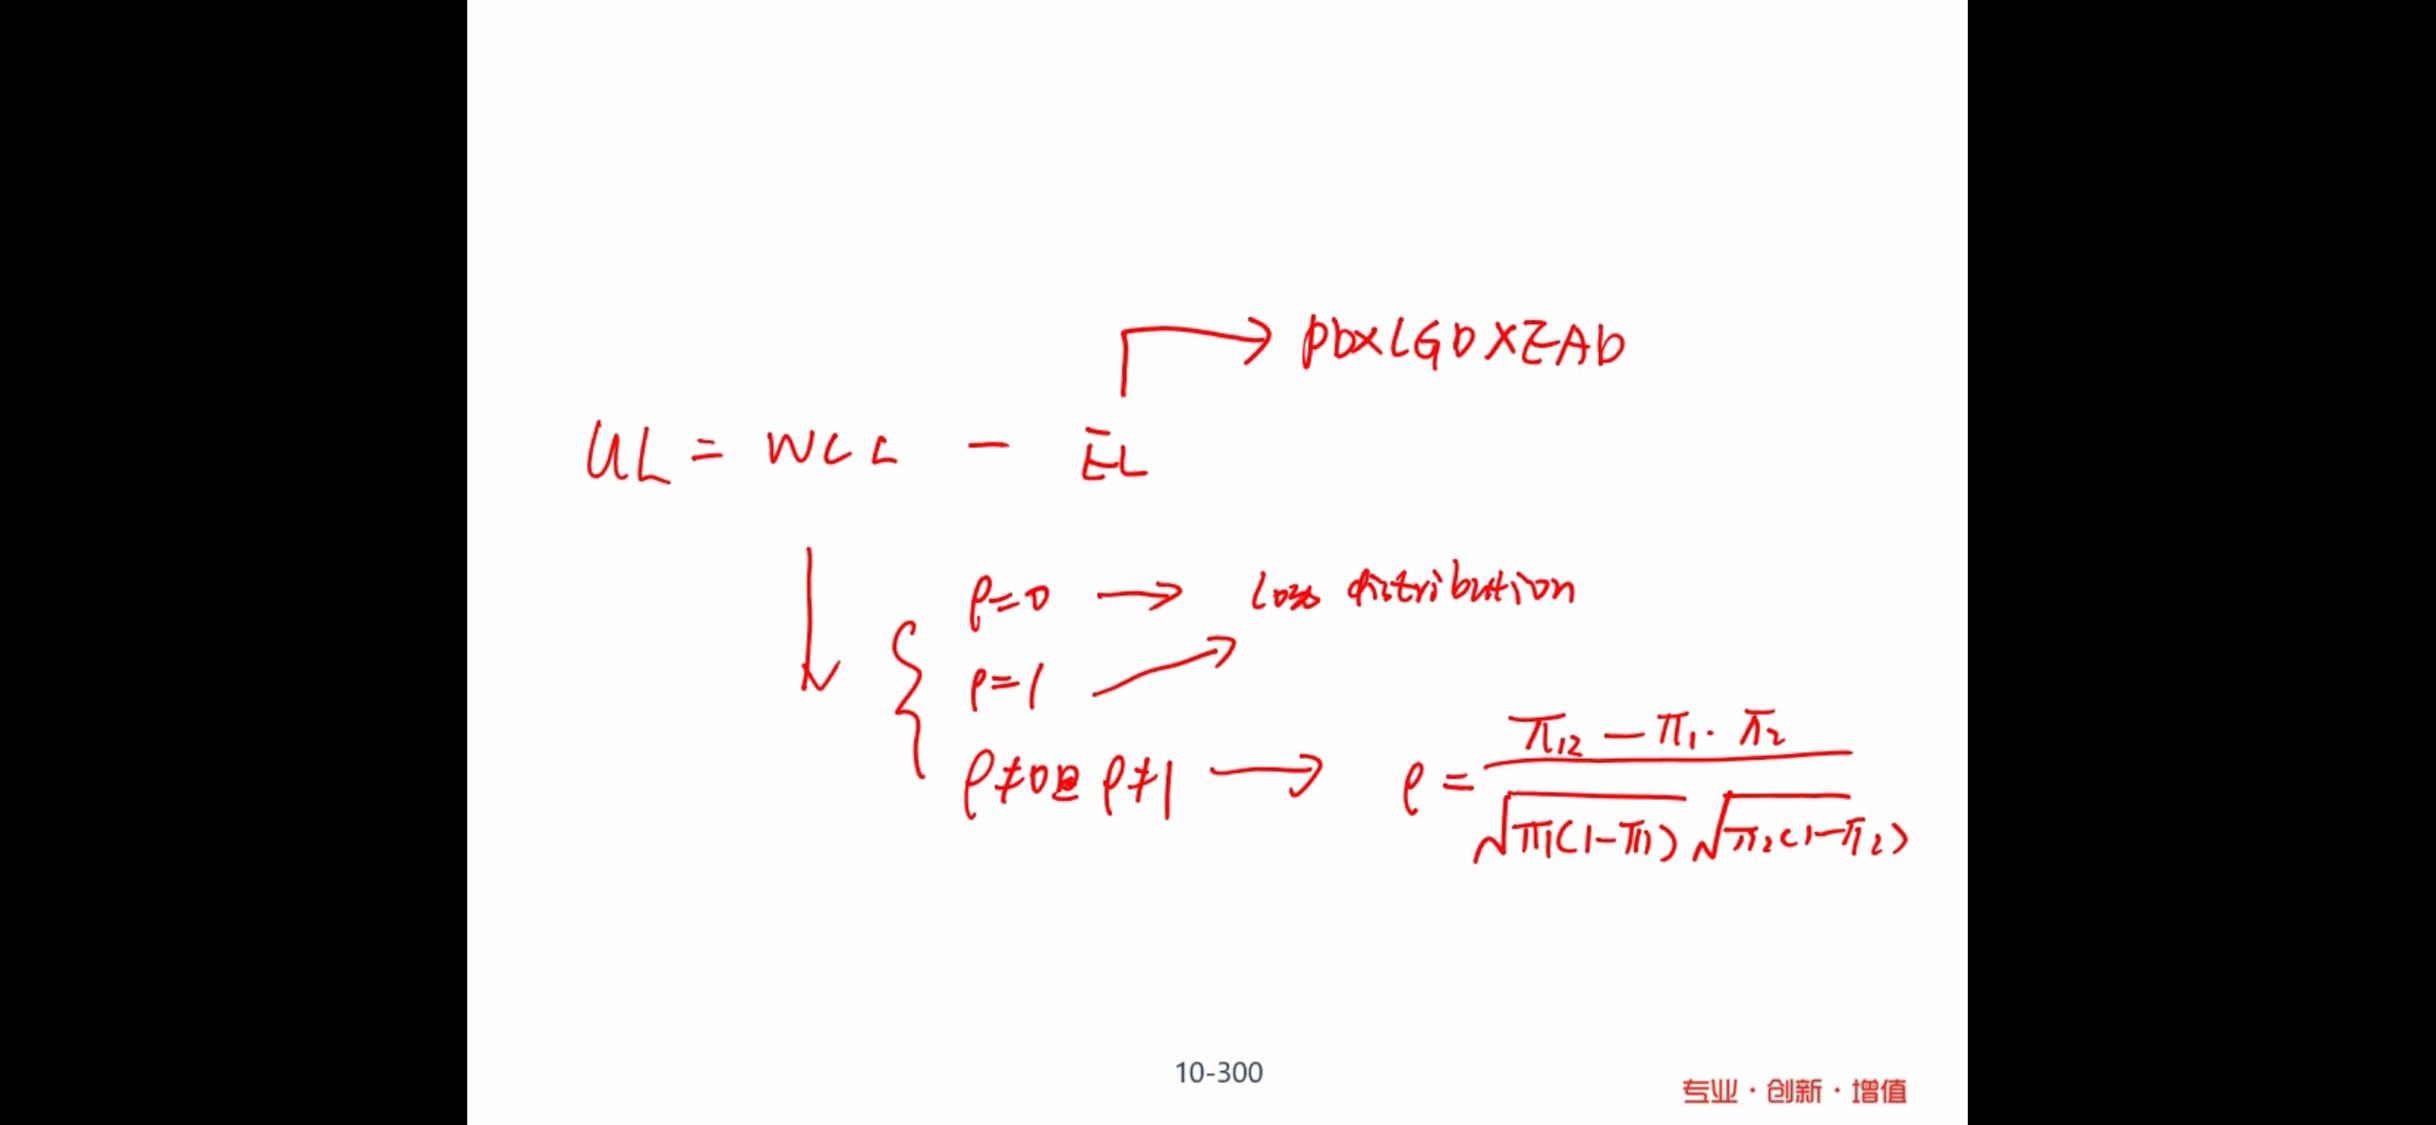 → PD×LGD×EAD
UL = WCL - EL
ρ=0 → Loss distribution
ρ=1
ρ≠0且 ρ≠1 → ρ = (π₁₂ - π₁·π₂) / (√π₁(1-π₁) √π₂(1-π₂))
10-300
专业·创新·增值